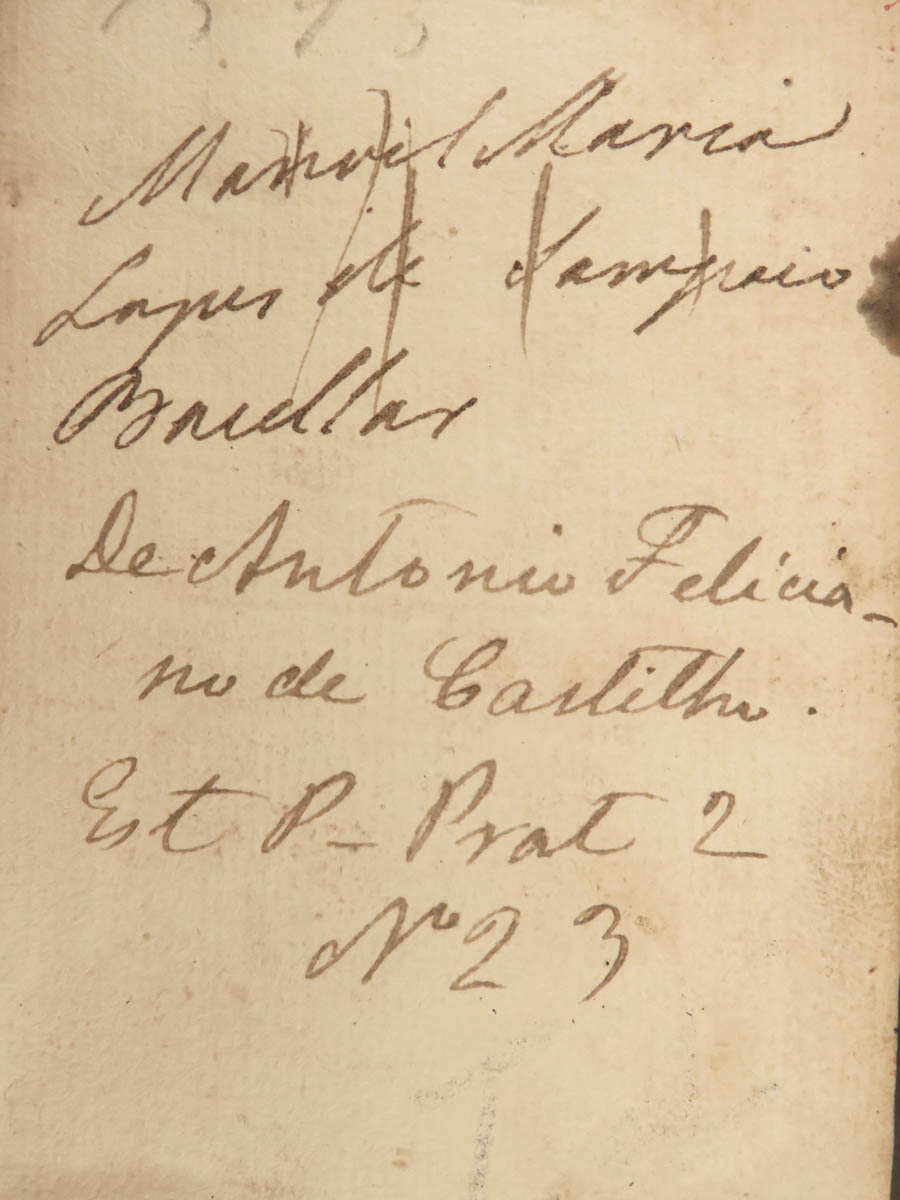 Manoel Maria
Lopes de Sampaio
Bacellar
De Antonio Felicia-
no de Castilho.
Est P- Prat 2
Nº 23